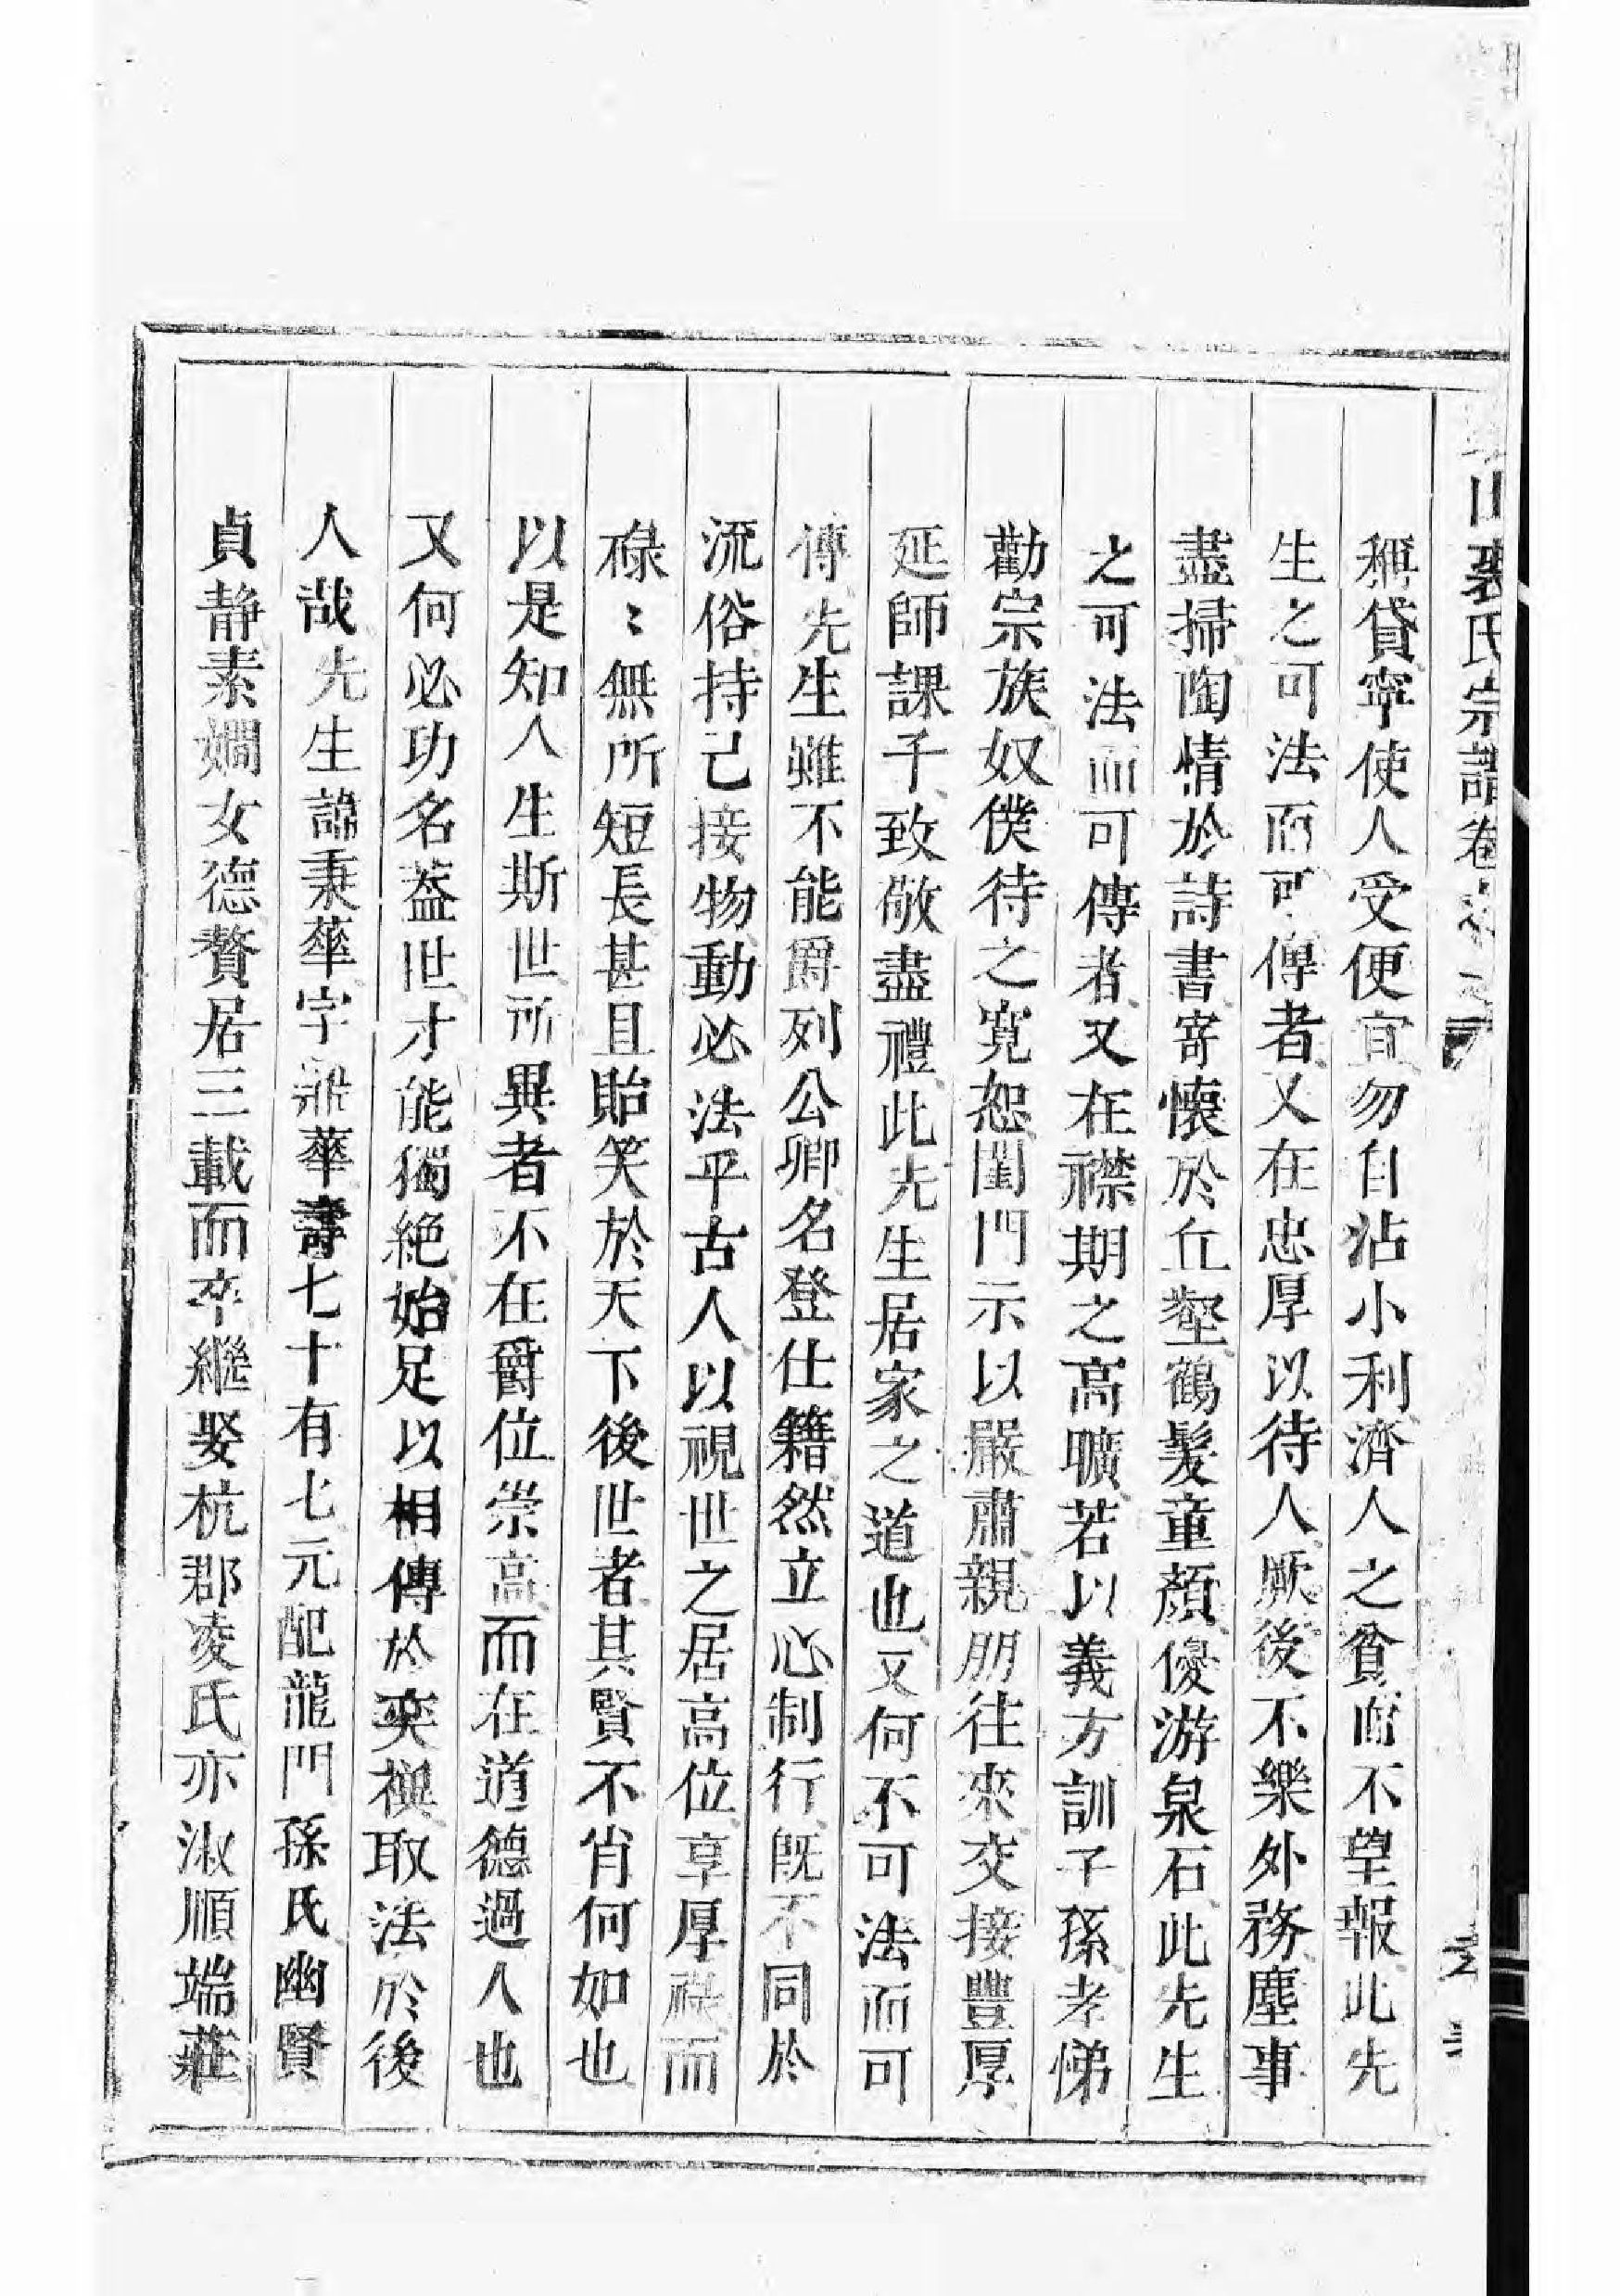 山裘氏宗譜卷
稱貸寧使人受便宜勿自沾小利濟人之貧而不望報此先
生之可法而可傳者又在忠厚以待人厥後不樂外務塵事
盡掃陶情於詩書寄懷於丘壑鶴髮童顏優游泉石此先生
之可法而可傳者又在襟期之高曠若以義方訓子孫孝悌
勸宗族奴僕待之寬恕閨門示以嚴肅親朋往來交接豐厚
延師課子致敬盡禮此先生居家之道也又何不可法而可
傳先生雖不能爵列公卿名登仕籍然立心制行既不同於
流俗持己接物動必法乎古人以視世之居高位享厚祿而
碌〻無所短長甚且貽笑於天下後世者其賢不肖何如也
以是知人生斯世所異者不在爵位崇高而在道德過人也
又何必功名葢世才能獨絕始足以相傳於奕禩取法於後
人哉先生諱秉蕐字蕐壽七十有七元配龍門孫氏幽賢
貞静素嫺女德贅居三載而卒繼娶杭郡凌氏亦淑順端莊